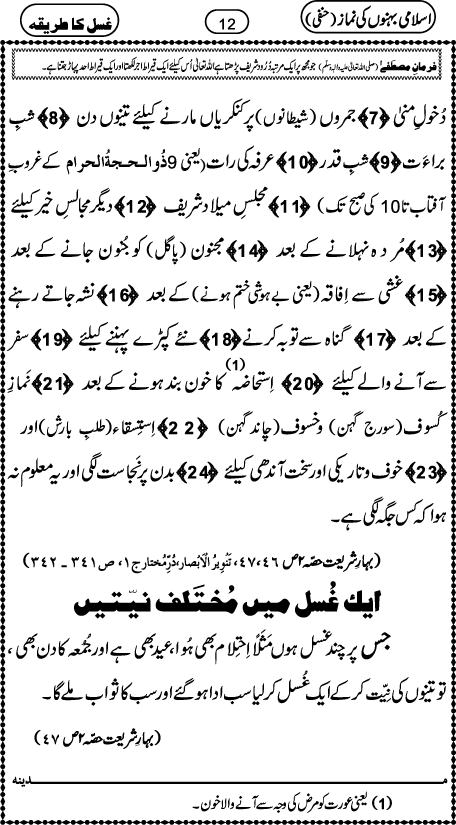 اسلامی بہنوں کی نماز (حنفی) 12 غسل کا طریقہ
فرمانِ مصطفےٰ (صلی اللہ تعالیٰ علیہ والہ وسلم) جو مجھ پر ایک مرتبہ دُرُود شریف پڑھتا ہے اللہ تعالیٰ اُس کیلئے ایک قیراط اجر لکھتا اور ایک قیراط احد پہاڑ جتنا ہے۔
دُخولِ منیٰ ﴿7﴾ جمروں (شیطانوں) پر کنکریاں مارنے کیلئے تینوں دن ﴿8﴾ شبِ
براءَت ﴿9﴾ شبِ قدر ﴿10﴾ عرفہ کی رات (یعنی 9 ذُوالحجۃُ الحرام کے غروبِ
آفتاب تا 10 کی صبح تک) ﴿11﴾ مجلسِ میلاد شریف ﴿12﴾ دیگر مجالسِ خیر کیلئے
﴿13﴾ مُردہ نہلانے کے بعد ﴿14﴾ مجنون (پاگل) کو جُنون جانے کے بعد
﴿15﴾ غَشی سے اِفاقہ (یعنی بے ہوشی ختم ہونے) کے بعد ﴿16﴾ نشہ جاتے رہنے
کے بعد ﴿17﴾ گناہ سے توبہ کرنے ﴿18﴾ نئے کپڑے پہننے کیلئے ﴿19﴾ سفر
سے آنے والے کیلئے ﴿20﴾ اِستحاضہ (1) کا خون بند ہونے کے بعد ﴿21﴾ نَمازِ
کُسوف (سورج گہن) وخُسوف (چاند گہن) ﴿22﴾ اِستِسقاء (طلبِ بارش) اور
﴿23﴾ خوف و تاریکی اور سخت آندھی کیلئے ﴿24﴾ بدن پر نَجاست لگی اور یہ معلوم نہ
ہوا کہ کس جگہ لگی ہے۔
(بہارِ شریعت حصّہ ۲ ص ۴۷،۴۶، تنویرُ الْابْصار، دُرِّمُختار ج ۱، ص ۳۴۱ ـ ۳۴۲)
ایک غُسل میں مُختَلف نیّتیں
جس پر چند غسل ہوں مَثَلاً اِحتِلام بھی ہوا، عید بھی ہے اور جُمُعہ کا دن بھی،
تو تینوں کی نِیّت کر کے ایک غُسل کر لیا سب ادا ہو گئے اور سب کا ثواب ملے گا۔
(بہارِ شریعت حصّہ ۲ ص ۴۷)
مدینہ
(1) یعنی عورت کو مرض کی وجہ سے آنے والا خون۔